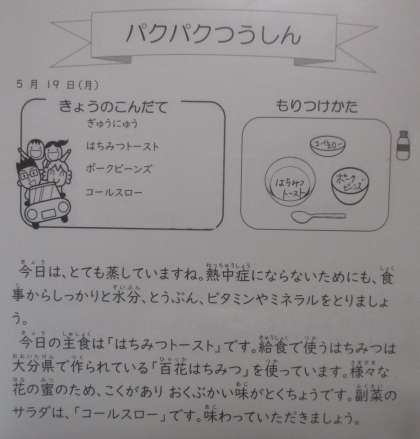 パクパクつうしん
5月 19日(月)
きょうのこんだて
ぎゅうにゅう
はちみつトースト
ポークビーンズ
コールスロー
もりつけかた
コールスロー
はちみつ
トースト
ポーク
ビーンズ
今日は、とても蒸していますね。熱中症にならないためにも、食
事からしっかりと水分、とうぶん、ビタミンやミネラルをとりましょ
う。
今日の主食は「はちみつトースト」です。給食で使うはちみつは
大分県で作られている「百花はちみつ」を使っています。様々な
花の蜜のため、こくがあり おくぶかい味がとくちょうです。副菜の
サラダは、「コールスロー」です。味わっていただきましょう。